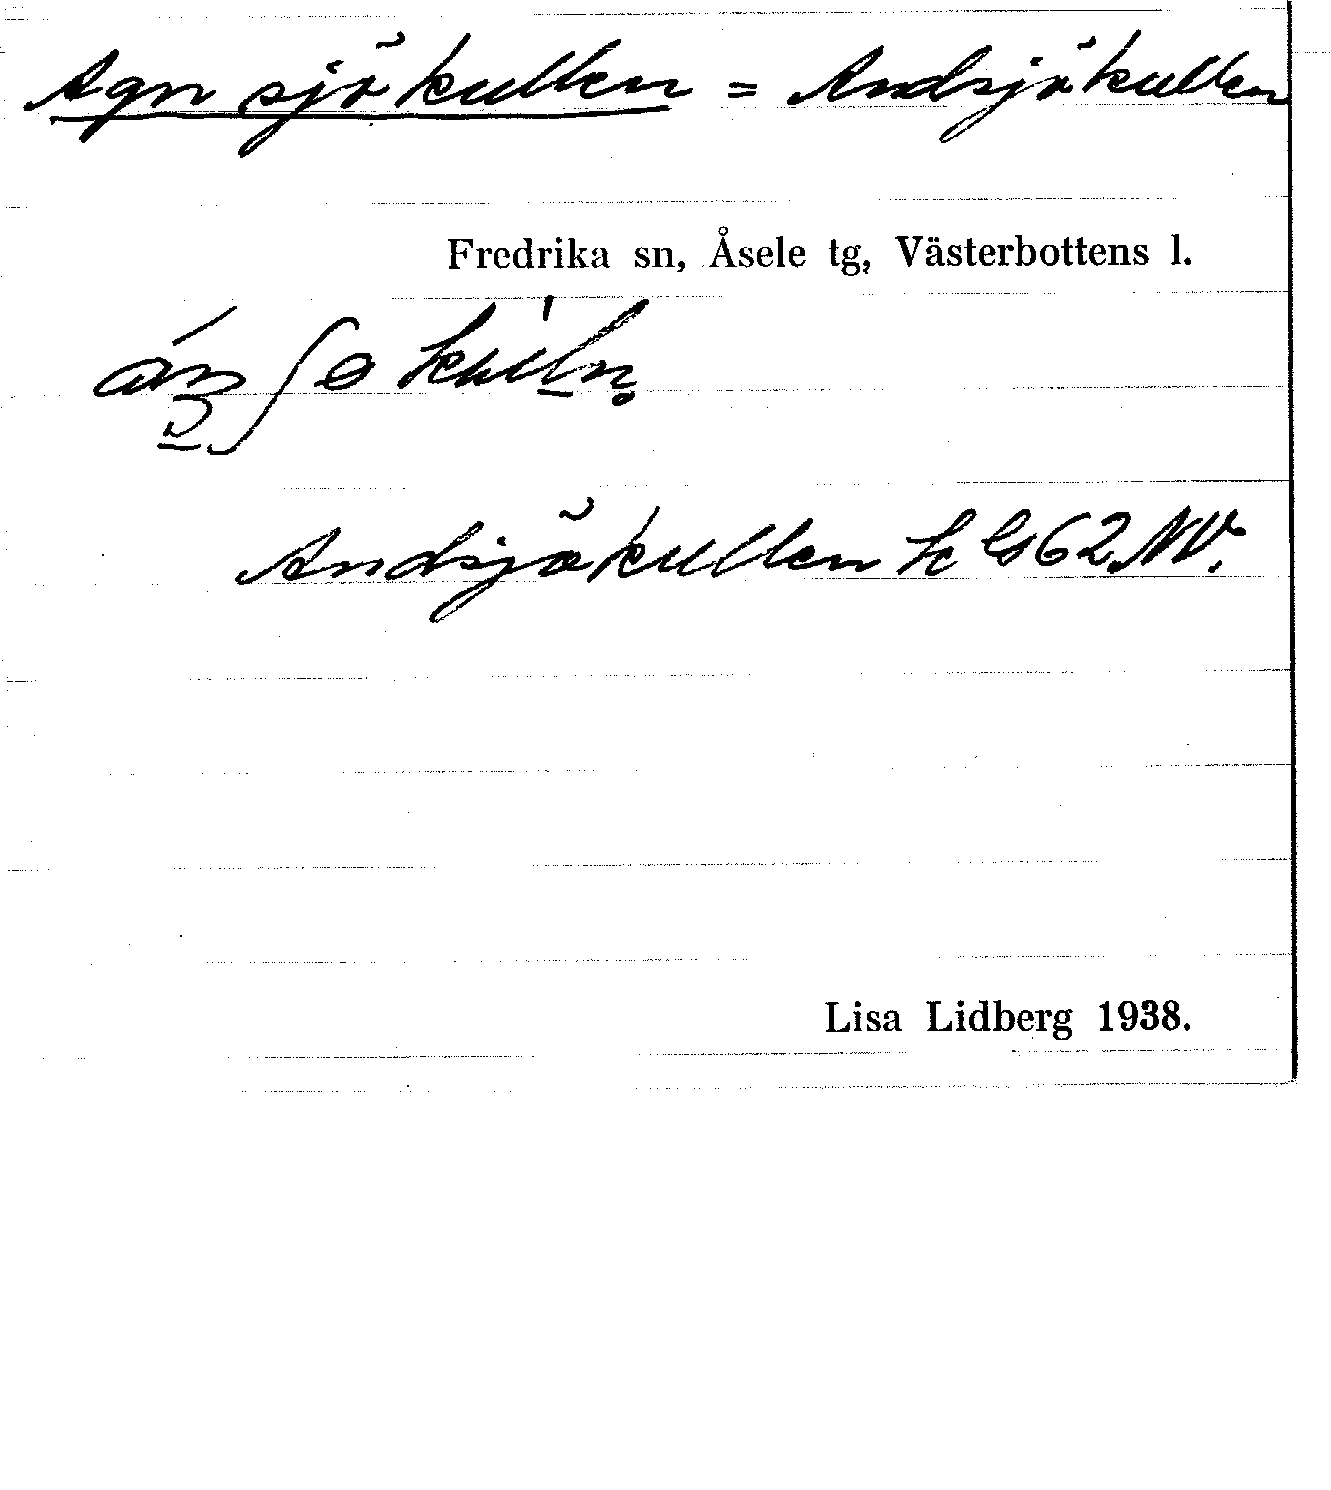 Agnsjökullen = Andsjökullen
Fredrika sn, Åsele tg, Västerbottens l.
Andsjökullen k Gs 62 NV.
Lisa Lidberg 1938.